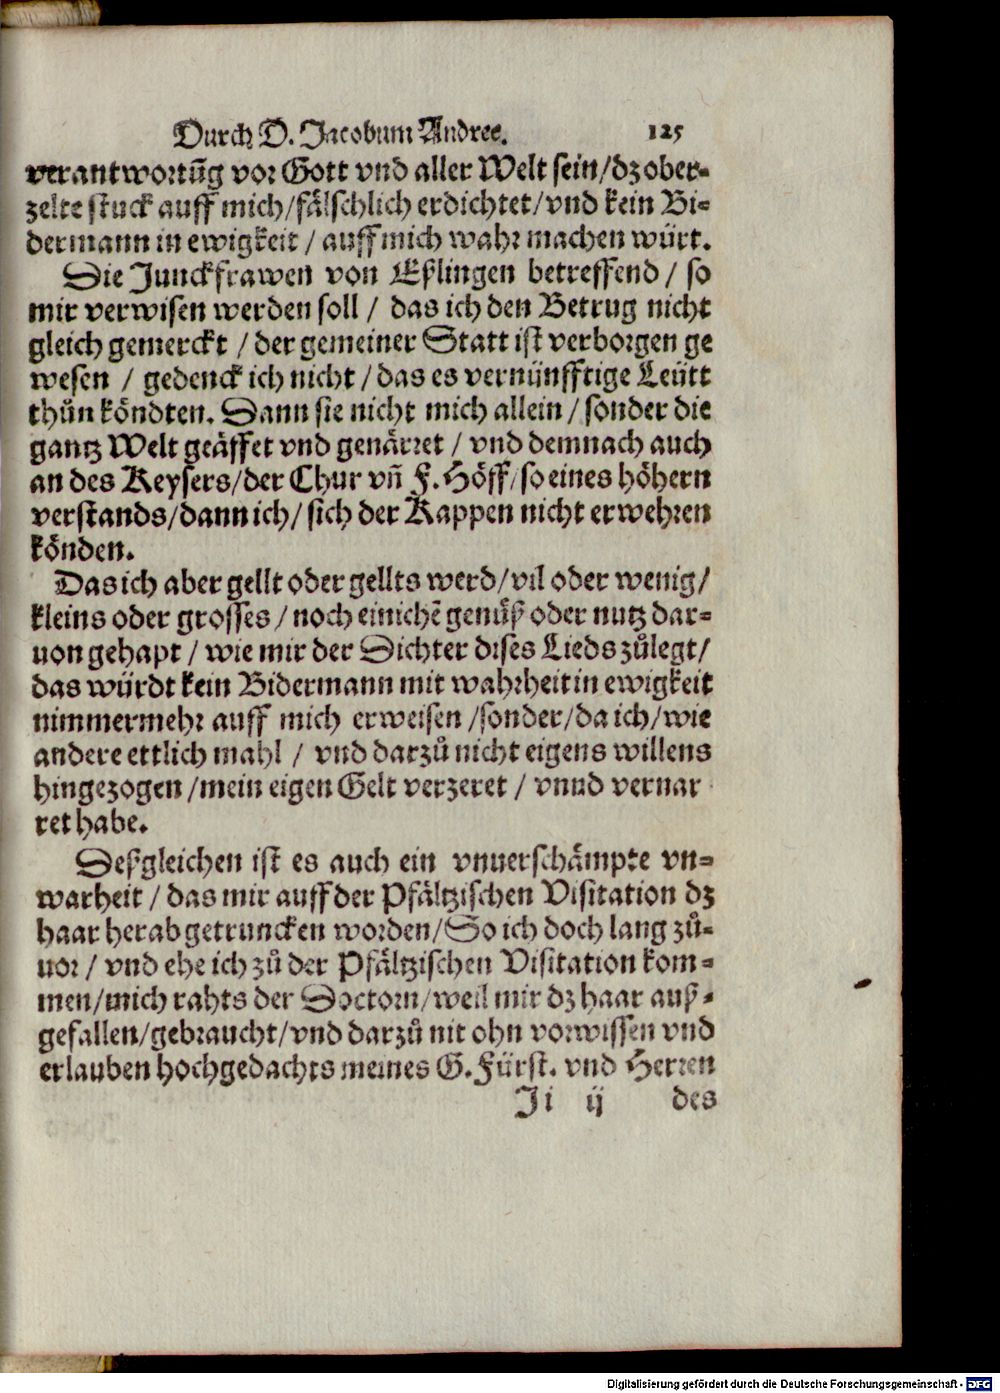 Durch D. Jacobum Andree. 125
verantwortũg vor Gott vnd aller Welt sein/dz ober-
zelte stuck auff mich/fälschlich erdichtet/vnd kein Bi-
dermann in ewigkeit / auff mich wahr machen würt.
Die Junckfrawen von Eßlingen betreffend / so
mir verwisen werden soll / das ich den Betrug nicht
gleich gemerckt / der gemeiner Statt ist verborgen ge
wesen / gedenck ich nicht / das es vernünfftige Leütt
thůn köndten. Dann sie nicht mich allein / sonder die
gantz Welt geäffet vnd genärret / vnd demnach auch
an des Keysers/der Chur vñ F. Höff/so eines höhern
verstands/dann ich/ sich der Kappen nicht erwehren
könden.
Das ich aber gellt oder gellts werd/vil oder wenig/
kleins oder grosses / noch einichẽ genůß oder nutz dar-
uon gehapt / wie mir der Dichter dises Lieds zůlegt/
das würdt kein Bidermann mit wahrheit in ewigkeit
nimmermehr auff mich erweisen /sonder/da ich/wie
andere ettlich mahl / vnd darzů nicht eigens willens
hingezogen /mein eigen Gelt verzeret / vnnd vernar
ret habe.
Deßgleichen ist es auch ein vnuerschämpte vn-
warheit / das mir auff der Pfältzischen Visitation dz
haar herab getruncken worden/So ich doch lang zů-
uor / vnd ehe ich zů der Pfältzischen Visitation kom-
men/mich rahts der Doctorn/weil mir dz haar auß-
gefallen/gebraucht/vnd darzů nit ohn vorwissen vnd
erlauben hochgedachts meines G. Fürst. vnd Herren
Ji ij des
Digitalisierung gefördert durch die Deutsche Forschungsgemeinschaft - DFG